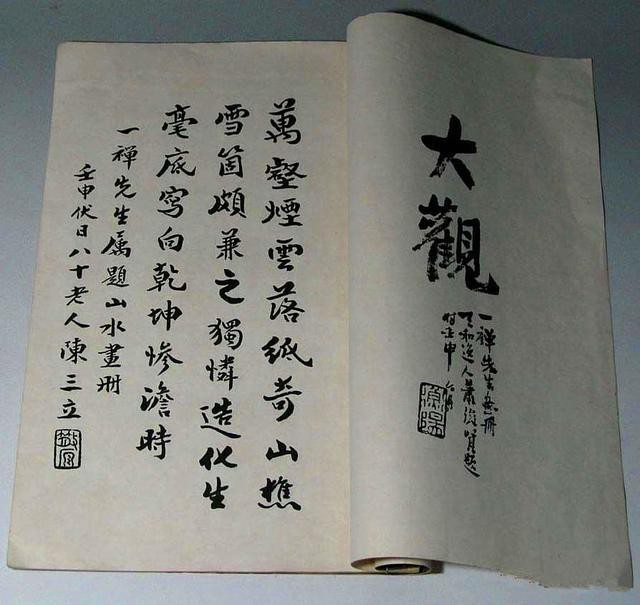 大觀
一禪先生畫冊
天和逸人蕭俊賢題
时壬申
萬壑煙雲落紙奇山樵
雪箇頗兼之獨憐造化生
毫底寫向乾坤慘澹時
一禪先生属題山水畫冊
壬申伏日八十老人陳三立
散原